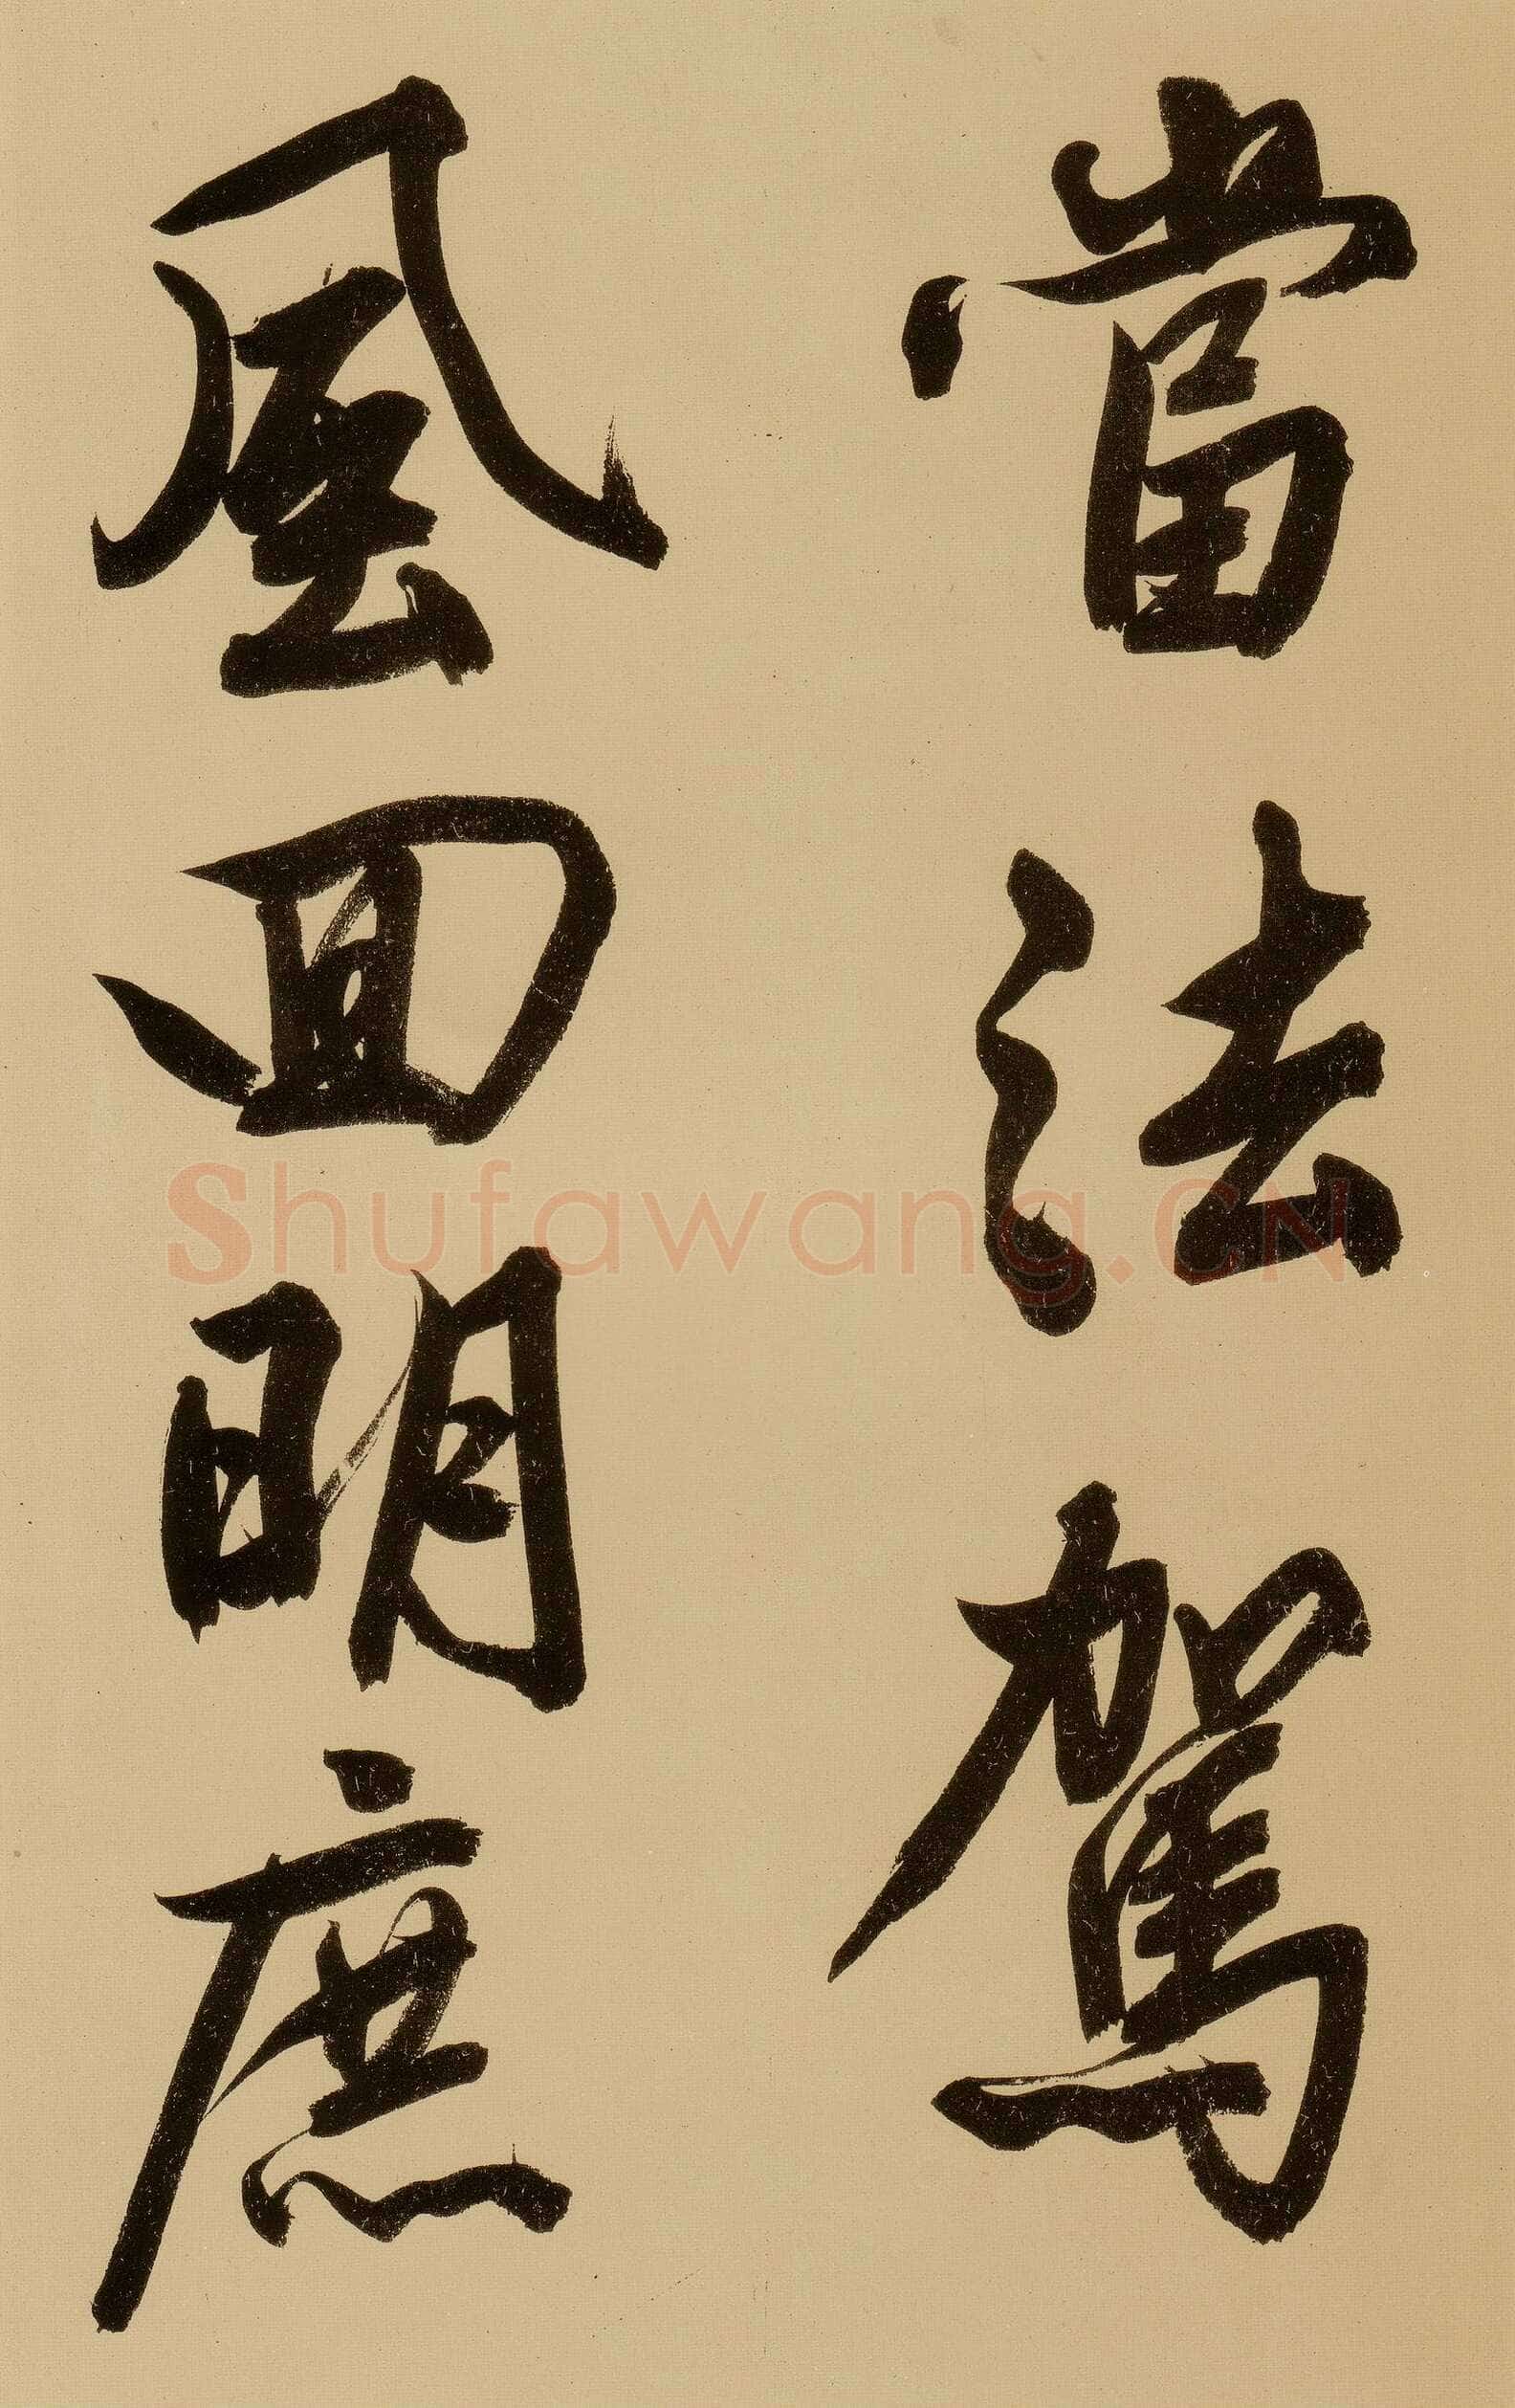 當法駕
風回明庶
Shufawang.CN